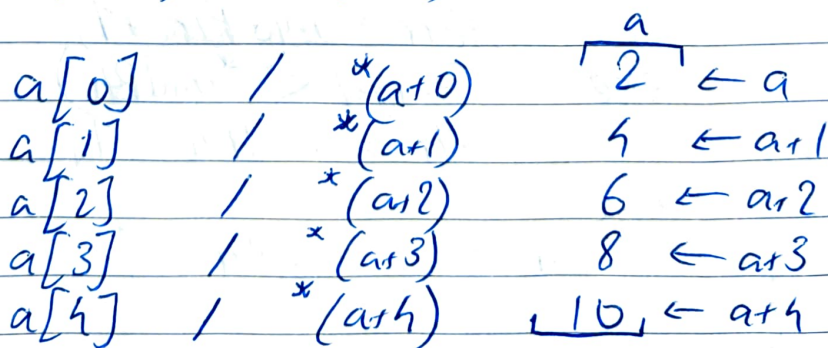 a
a[0] / *(a+0) 2 ← a
a[1] / *(a+1) 4 ← a+1
a[2] / *(a+2) 6 ← a+2
a[3] / *(a+3) 8 ← a+3
a[4] / *(a+4) 10 ← a+4